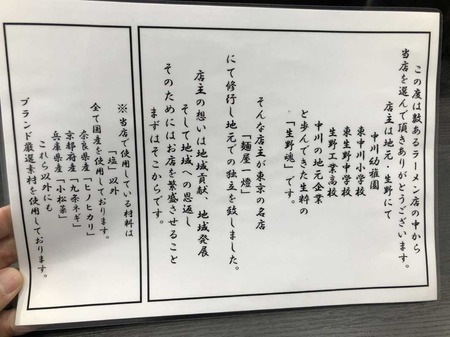 この度は数あるラーメン店の中から
当店を選んで頂きありがとうございます。
店主は地元・生野にて
中川幼稚園
東中川小学校
東生野中学校
生野工業高校
中川の地元企業
と歩んできた生粋の
「生野魂」です。
そんな店主が東京の名店
「麺屋一燈」
にて修行し地元での独立を致しました。
店主の想いは地域貢献、地域発展
そして地域への恩返し
そのためにはお店を繁盛させること
まずはそこからです。
※当店で使用している材料は
「塩」以外
全て国産を使用しております。
奈良県産「ヒノヒカリ」
京都府産「九条ネギ」
兵庫県産「小松菜」
これら以外にも
ブランド厳選素材を使用しております。